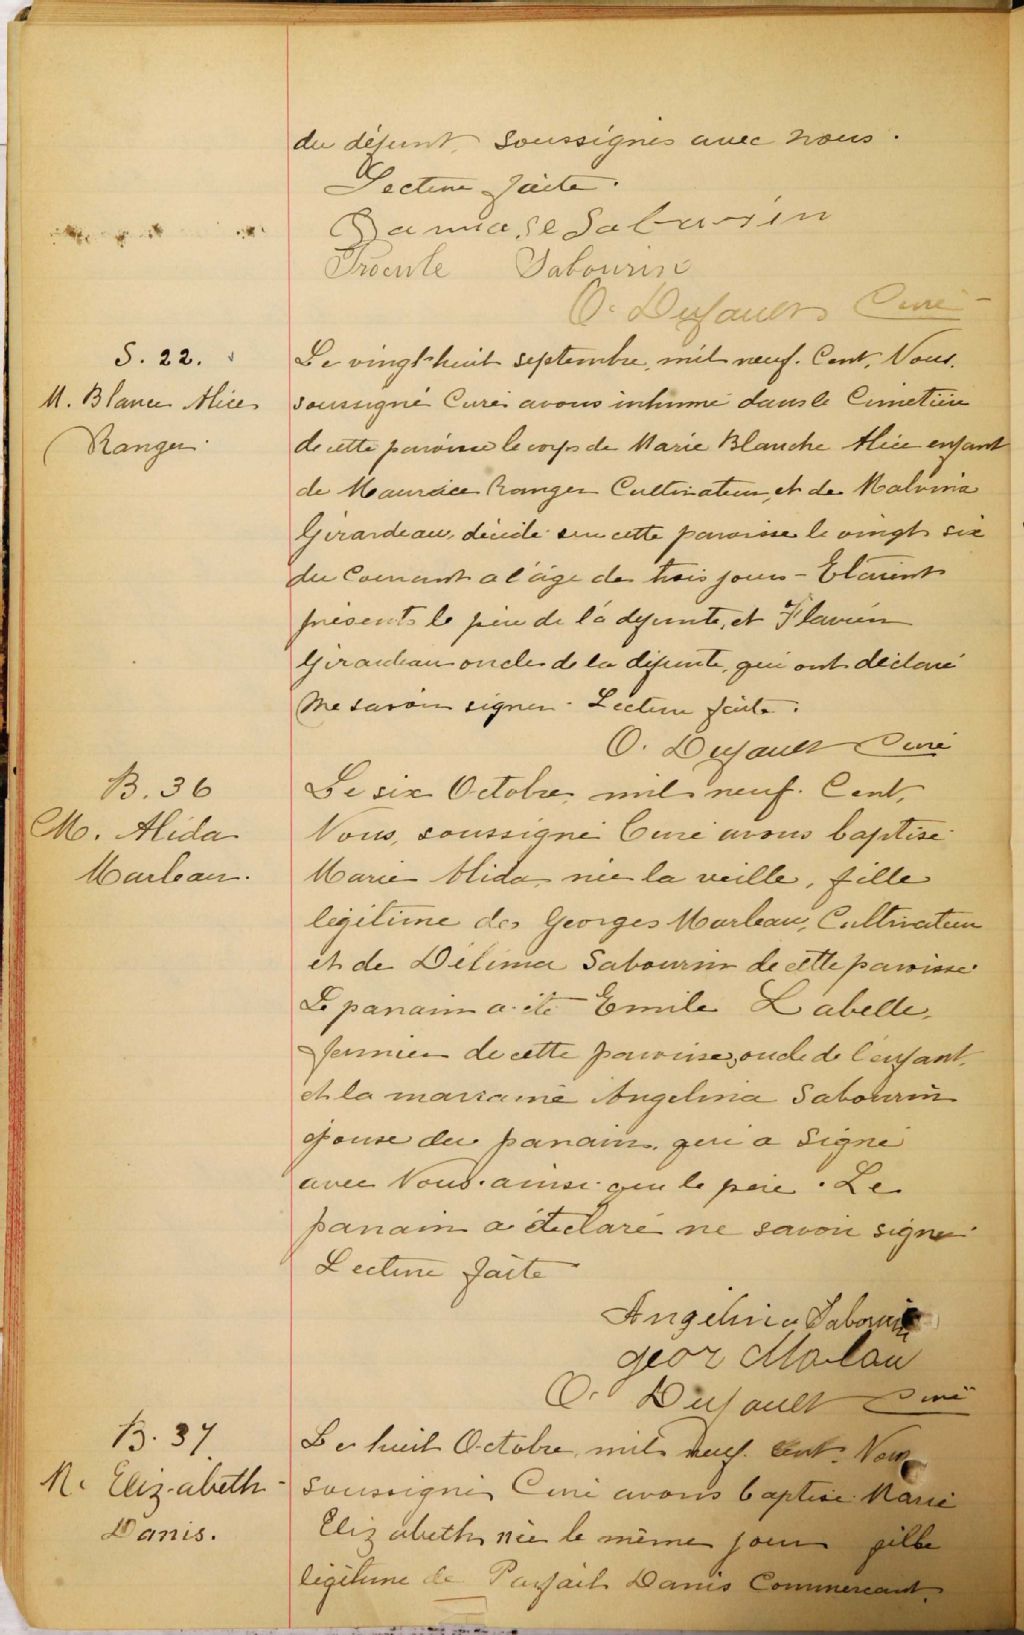 du défunt, soussignés avec nous.
Lecture faite.
Damase Sabourin
Sabourin
O. Dufault Curé
S. 22.
M. Blanche Alice
Ranger.
Le vingt-huit septembre, mil neuf. Cent, Nous.
soussigné Curé avons inhumé dans le Cimetière
de cette paroisse le corps de Marie Blanche Alice enfant
de Maurice Ranger Cultivateur, et de Malvina
Girardeau, décédé en cette paroisse le vingt six
du Courant a l'âge de trois jours - Etaient
présents le père de la défunte, et Flavien
Girardeau oncle de la défunte, qui ont déclaré
ne savoir signer. Lecture faite.
O. Dufault Curé
B. 36
M. Alida
Marleau.
Le six Octobre, mil neuf. Cent,
Nous, soussigné Curé avons baptisé
Marie Alida, née la veille, fille
légitime de Georges Marleau, Cultivateur
et de Délima Sabourin de cette paroisse.
Le parrain a été Emile Labelle,
fermier de cette paroisse, oncle de l'enfant,
et la marraine Angelina Sabourin
épouse du parrain, qui a signé
avec Nous. ainsi que le père. Le
parrain a déclaré ne savoir signer.
Lecture faite
Angelina Sabourin
geor Malau
O. Dufault Curé
B. 37
M. Elizabeth
Danis.
Le huit Octobre, mil neuf. Cent. Nous
soussigné Curé avons baptisé Marie
Elizabeth née le même jour fille
légitime de Parfait Danis Commercant,